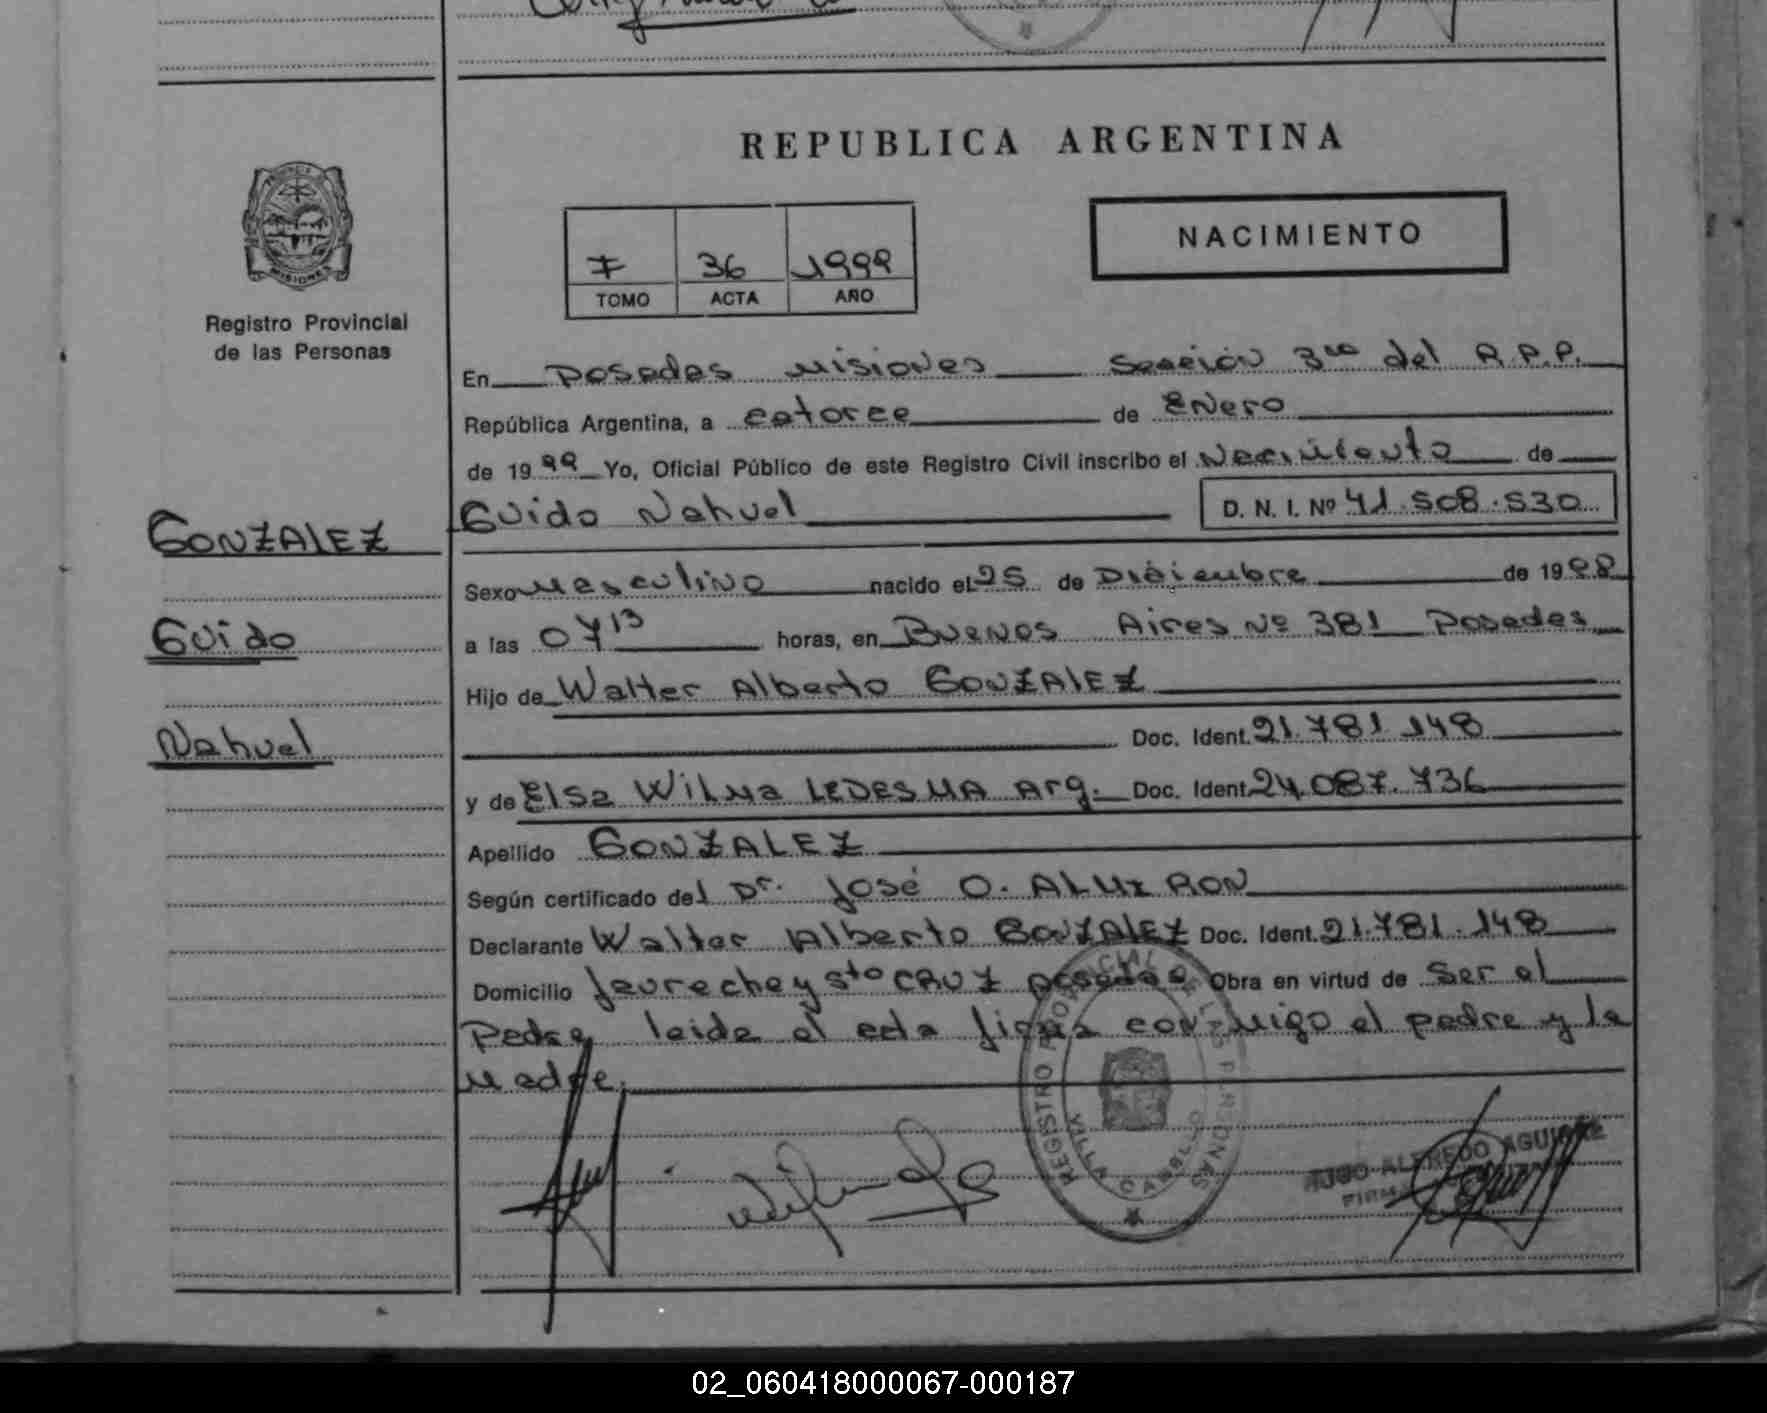 REPUBLICA ARGENTINA
NACIMIENTO
7 36 1999
TOMO ACTA AÑO
MISIONES
Registro Provincial
de las Personas
En Posadas Misiones Sección 3ra del R.P.P.
República Argentina, a catorce de Enero
de 1999 Yo, Oficial Público de este Registro Civil inscribo el Nacimiento de
Guido Nahuel D. N. I. Nº 41.508.530
GONZALEZ
Guido
Nahuel
Sexo Masculino nacido el 25 de Diciembre de 1998
a las 07 13 horas, en Buenos Aires Nº 381 Posadas
Hijo de Walter Alberto GONZALEZ
Doc. Ident. 21.781.148
y de Elsa Wilma LEDESMA Arg. Doc. Ident. 24.087.736
Apellido GONZALEZ
Según certificado del Dr. José O. ALMIRON
Declarante Walter Alberto GONZALEZ Doc. Ident. 21.781.148
Domicilio Jaureche y Sto CRUZ Posadas Obra en virtud de Ser el
Padre, leida el acta firma conmigo el padre y la
Madre.
REGISTRO PROVINCIAL DE LAS PERSONAS
VILLA CABELLO
HUGO ALFREDO AGUIRRE
02_060418000067-000187